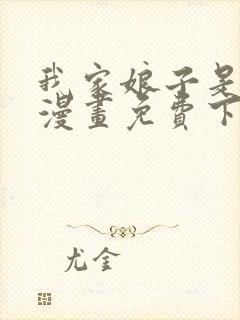 我家娘子是
漫畫免費下
尤金